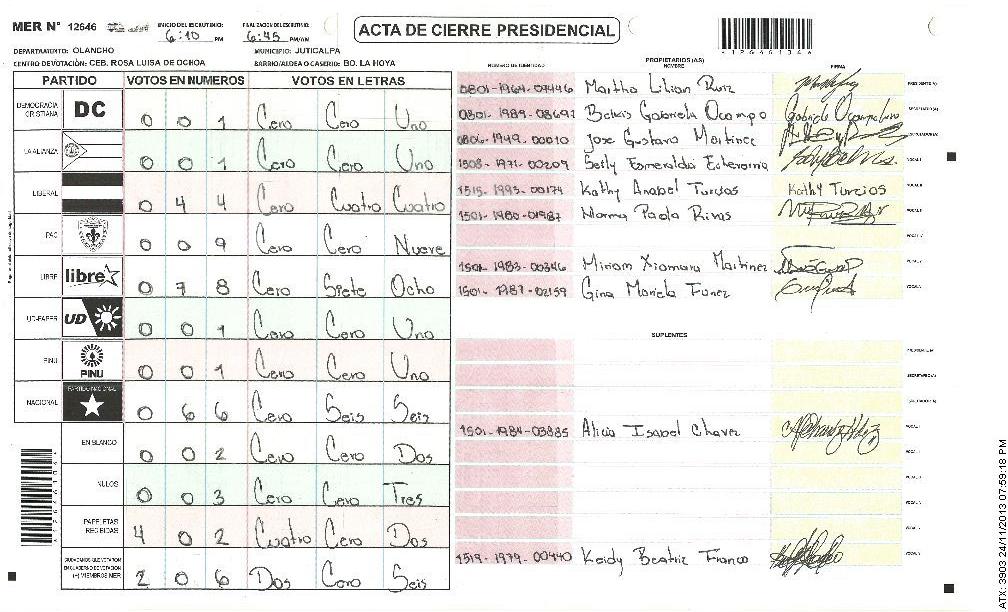 MER N° 12646
INICIO DEL ESCRUTINIO: 6:10 PM
FINALIZACIÓN DEL ESCRUTINIO: 6:45 PM/AM
ACTA DE CIERRE PRESIDENCIAL
DEPARTAMENTO: OLANCHO
MUNICIPIO: JUTICALPA
CENTRO DE VOTACIÓN: CEB. ROSA LUISA DE OCHOA
BARRIO/ALDEA O CASERIO: BO. LA HOYA
PARTIDO VOTOS EN NUMEROS VOTOS EN LETRAS
DEMOCRACIA CRISTIANA DC 0 0 1 Cero Cero Uno
LA ALIANZA 0 0 1 Cero Cero Uno
LIBERAL 0 4 4 Cero Cuatro Cuatro
PAC 0 0 9 Cero Cero Nueve
LIBRE libre 0 7 8 Cero Siete Ocho
UD-FAPER UD 0 0 1 Cero Cero Uno
PINU PINU 0 0 1 Cero Cero Uno
NACIONAL PARTIDO NACIONAL 0 6 6 Cero Seis Seis
EN BLANCO 0 0 2 Cero Cero Dos
NULOS 0 0 3 Cero Cero Tres
PAPELETAS RECIBIDAS 4 0 2 Cuatro Cero Dos
CIUDADANOS QUE VOTARON EN CUADERNO DE VOTACION (+) MIEMBROS MER 2 0 6 Dos Cero Seis
PROPIETARIOS (AS)
NUMERO DE IDENTIDAD NOMBRE FIRMA
0801-1964-09446 Martha Lilian Ruiz PRESIDENTE(A)
0801-1989-08697 Belkis Gabriela Ocampo SECRETARIO(A)
0806-1949-00010 Jose Gustavo Martinez ESCRUTADOR(A)
1503-1971-00209 Betty Esmeralda Echeverria VOCAL I
1515-1993-00174 Kathy Anabel Turcios Kathy Turcios VOCAL II
1501-1980-01987 Norma Paola Rivas
1501-1983-00346 Miriam Xiomara Martinez
1501-1987-02159 Gina Mariela Funez
SUPLENTES
PRESIDENTE(A)
SECRETARIO(A)
ESCRUTADOR(A)
1501-1984-03885 Alicia Isabel Chavez VOCAL I
1519-1979-00440 Keidy Beatriz Franco
ATX: 3903 24/11/2013 07:59:18 PM